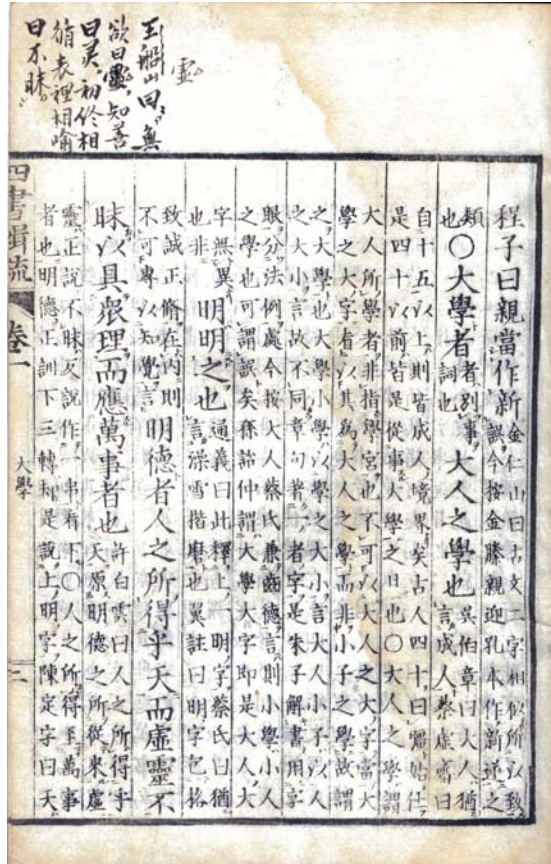 靈
王船山曰無
欲曰靈知善
曰灵初終相
循表裡相喻
曰不昧
程子曰親當作新 金仁山曰古文二字相似所以致
誤今按金縢親迎孔本作新逆之
類也○大學者 者別事詞也 大人之學也 吳伯章曰大人猶
言成人蔡虛齋曰
自十五以上則皆成人境界矣古人四十曰彊始仕
是四十以前皆是從事大學之日也○大人之學謂
大人所學者非指學宮也不可以大人之大字當大
學之大字者以其為大人之學而非小子之學故謂
之大學也大學小學以學之大小言大人小子以人
之大小言故不同章句著一者字是朱子解書用字
眼分法例處今按大人蔡氏兼齒德言則小學小人
之學也可謂誤矣孫詒仲謂大學大字即是大人大
字無異也非 明明之也 通義曰此釋上一明字蔡氏曰猶
言澡雪揩磨也翼註曰明字包格
致誠正脩在內則
不可專以知覺言 明德者人之所得乎天而虛靈不
昧以具衆理而應萬事者也 許白雲曰人之所得乎
天原明德之所從來虛
靈正說不昧反說作一串看下○人之所得至萬事
者也明德正訓下三轉却是說上明字陳定字曰天
四書緝疏 卷一 大學 二